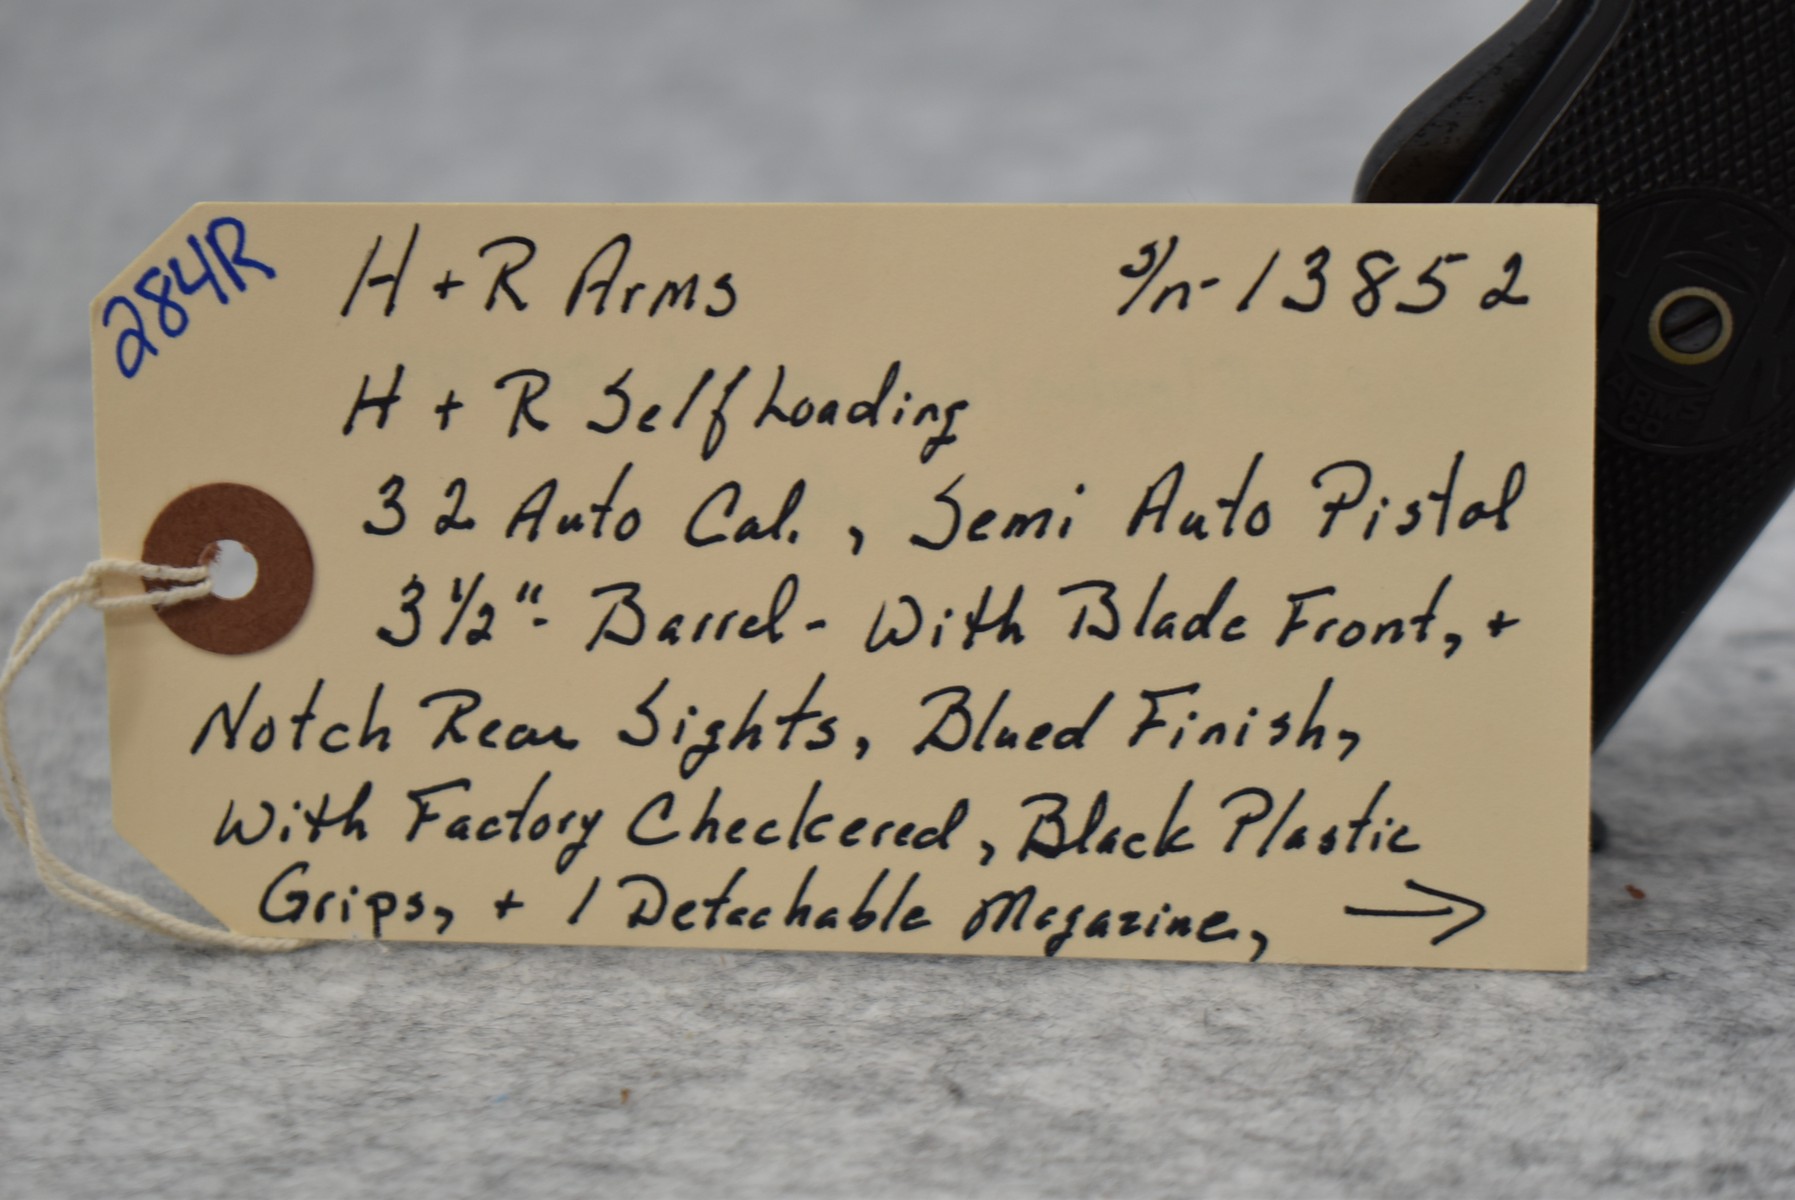 284R
H + R Arms s/n- 13852
H + R Self Loading
32 Auto Cal. , Semi Auto Pistol
3 1/2"- Barrel - With Blade Front, +
Notch Rear Sights, Blued Finish,
With Factory Checkered, Black Plastic
Grips, + 1 Detachable Magazine, →
ARMS
CO